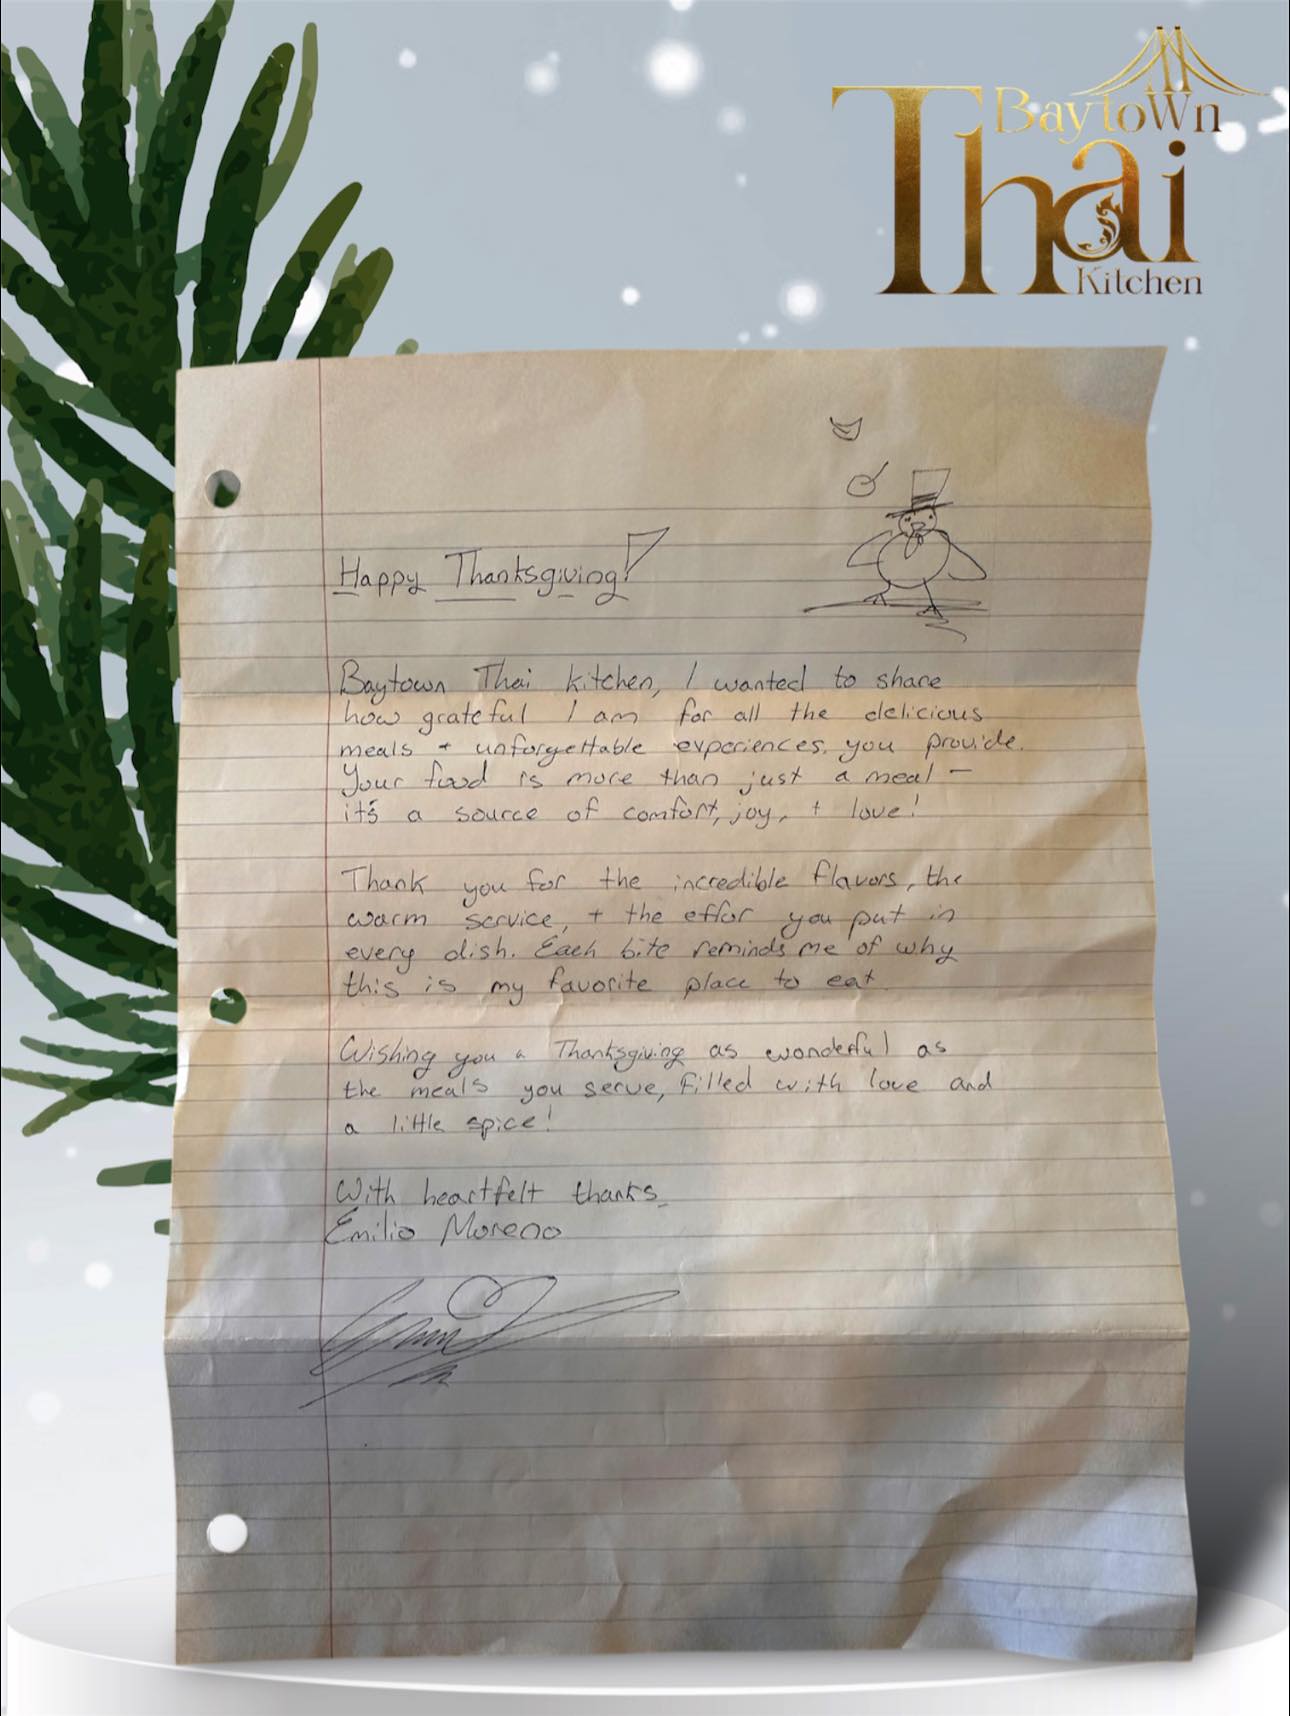 Baytown
Thai
Kitchen
Happy Thanksgiving!
Baytown Thai kitchen, I wanted to share
how grateful I am for all the delicious
meals + unforgettable experiences you provide.
Your food is more than just a meal -
it's a source of comfort, joy, + love!
Thank you for the incredible flavors, the
warm service, + the effor you put in
every dish. Each bite reminds me of why
this is my favorite place to eat.
Wishing you a Thanksgiving as wonderful as
the meals you serve, filled with love and
a little spice!
With heartfelt thanks,
Emilio Moreno